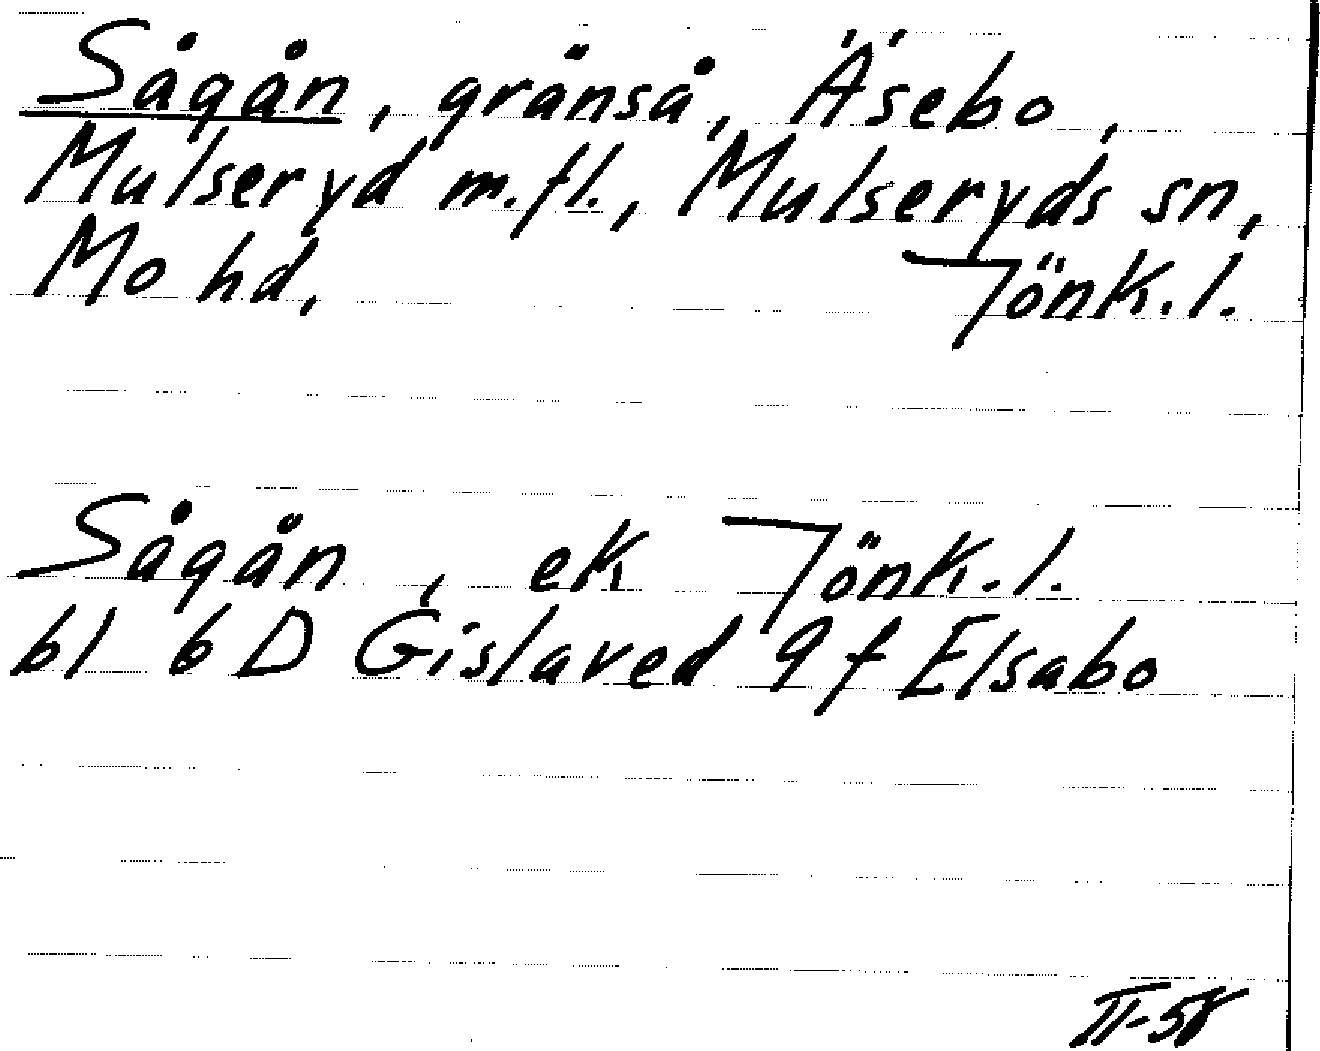 Sågån, gränså, Äsebo,
Mulseryd m.fl., Mulseryds sn,
Mo hd, Jönk.l.
Sågån, ek Jönk.l.
bl 6D Gislaved 9f Elsabo
II-58